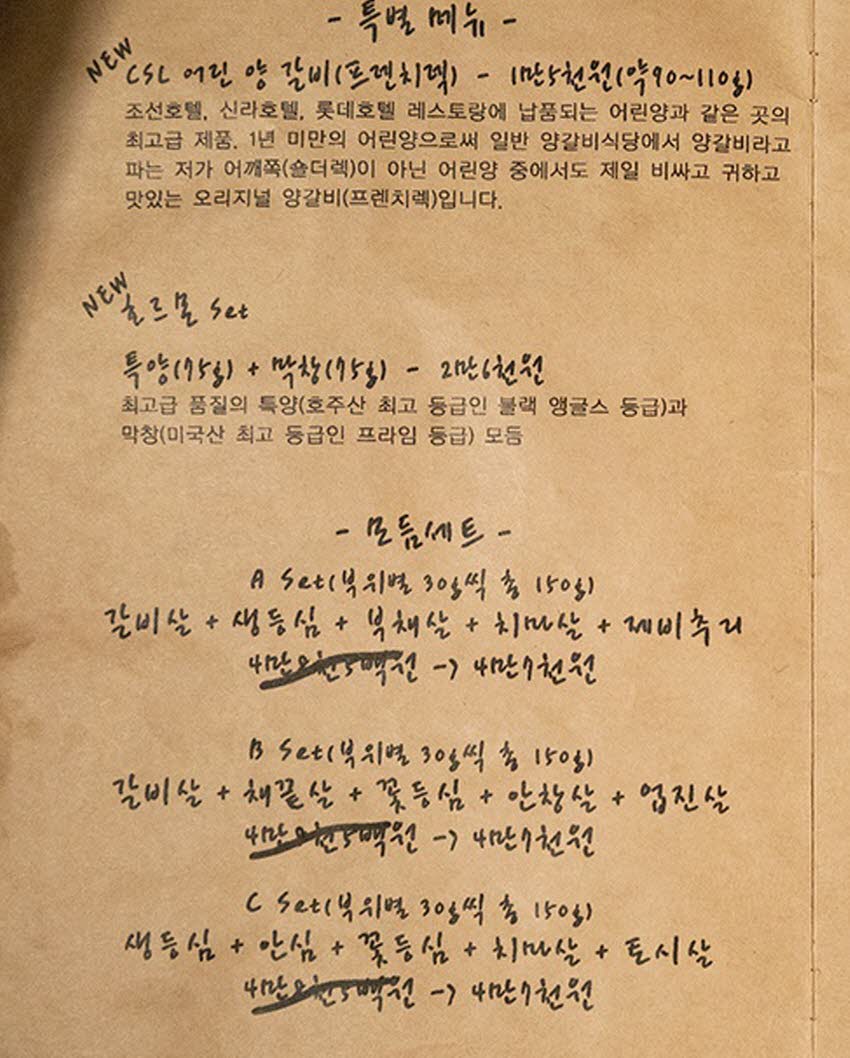 - 특별 메뉴 -
NEW
CSL 어린 양 갈비(프렌치렉) - 1만5천원(약90~110g)
조선호텔, 신라호텔, 롯데호텔 레스토랑에 납품되는 어린양과 같은 곳의
최고급 제품. 1년 미만의 어린양으로써 일반 양갈비식당에서 양갈비라고
파는 저가 어깨쪽(숄더렉)이 아닌 어린양 중에서도 제일 비싸고 귀하고
맛있는 오리지널 양갈비(프렌치렉)입니다.
NEW
호르몬 Set
특양(75g) + 막창(75g) - 2만6천원
최고급 품질의 특양(호주산 최고 등급인 블랙 앵글스 등급)과
막창(미국산 최고 등급인 프라임 등급) 모듬
- 모듬세트 -
A Set(부위별 30g씩 총 150g)
갈비살 + 생등심 + 부채살 + 치마살 + 제비추리
4만 -> 4만7천원
B Set(부위별 30g씩 총 150g)
갈비살 + 채끝살 + 꽃등심 + 안창살 + 업진살
4만 -> 4만7천원
C Set(부위별 30g씩 총 150g)
생등심 + 안심 + 꽃등심 + 치마살 + 토시살
4만 -> 4만7천원